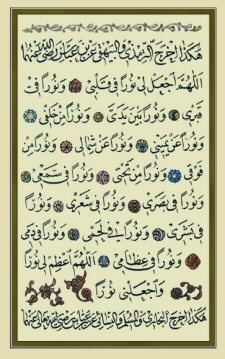 هكذا أخرج الترمذي والبيهقي عن ابن عباس رضي الله عنهما
اللهم اجعل لي نورا في قلبي ونورا في
قبري ونورا بين يدي ونورا من خلفي
ونورا عن يميني ونورا عن شمالي ونورا من
فوقي ونورا من تحتي ونورا في سمعي
ونورا في بصري ونورا في شعري ونورا
في بشري ونورا في لحمي ونورا في دمي
ونورا في عظامي اللهم أعظم لي نورا
واجعلني نورا
هكذا أخرج البخاري ومسلم والنسائي عن ابن عباس رضي الله تعالى عنهما